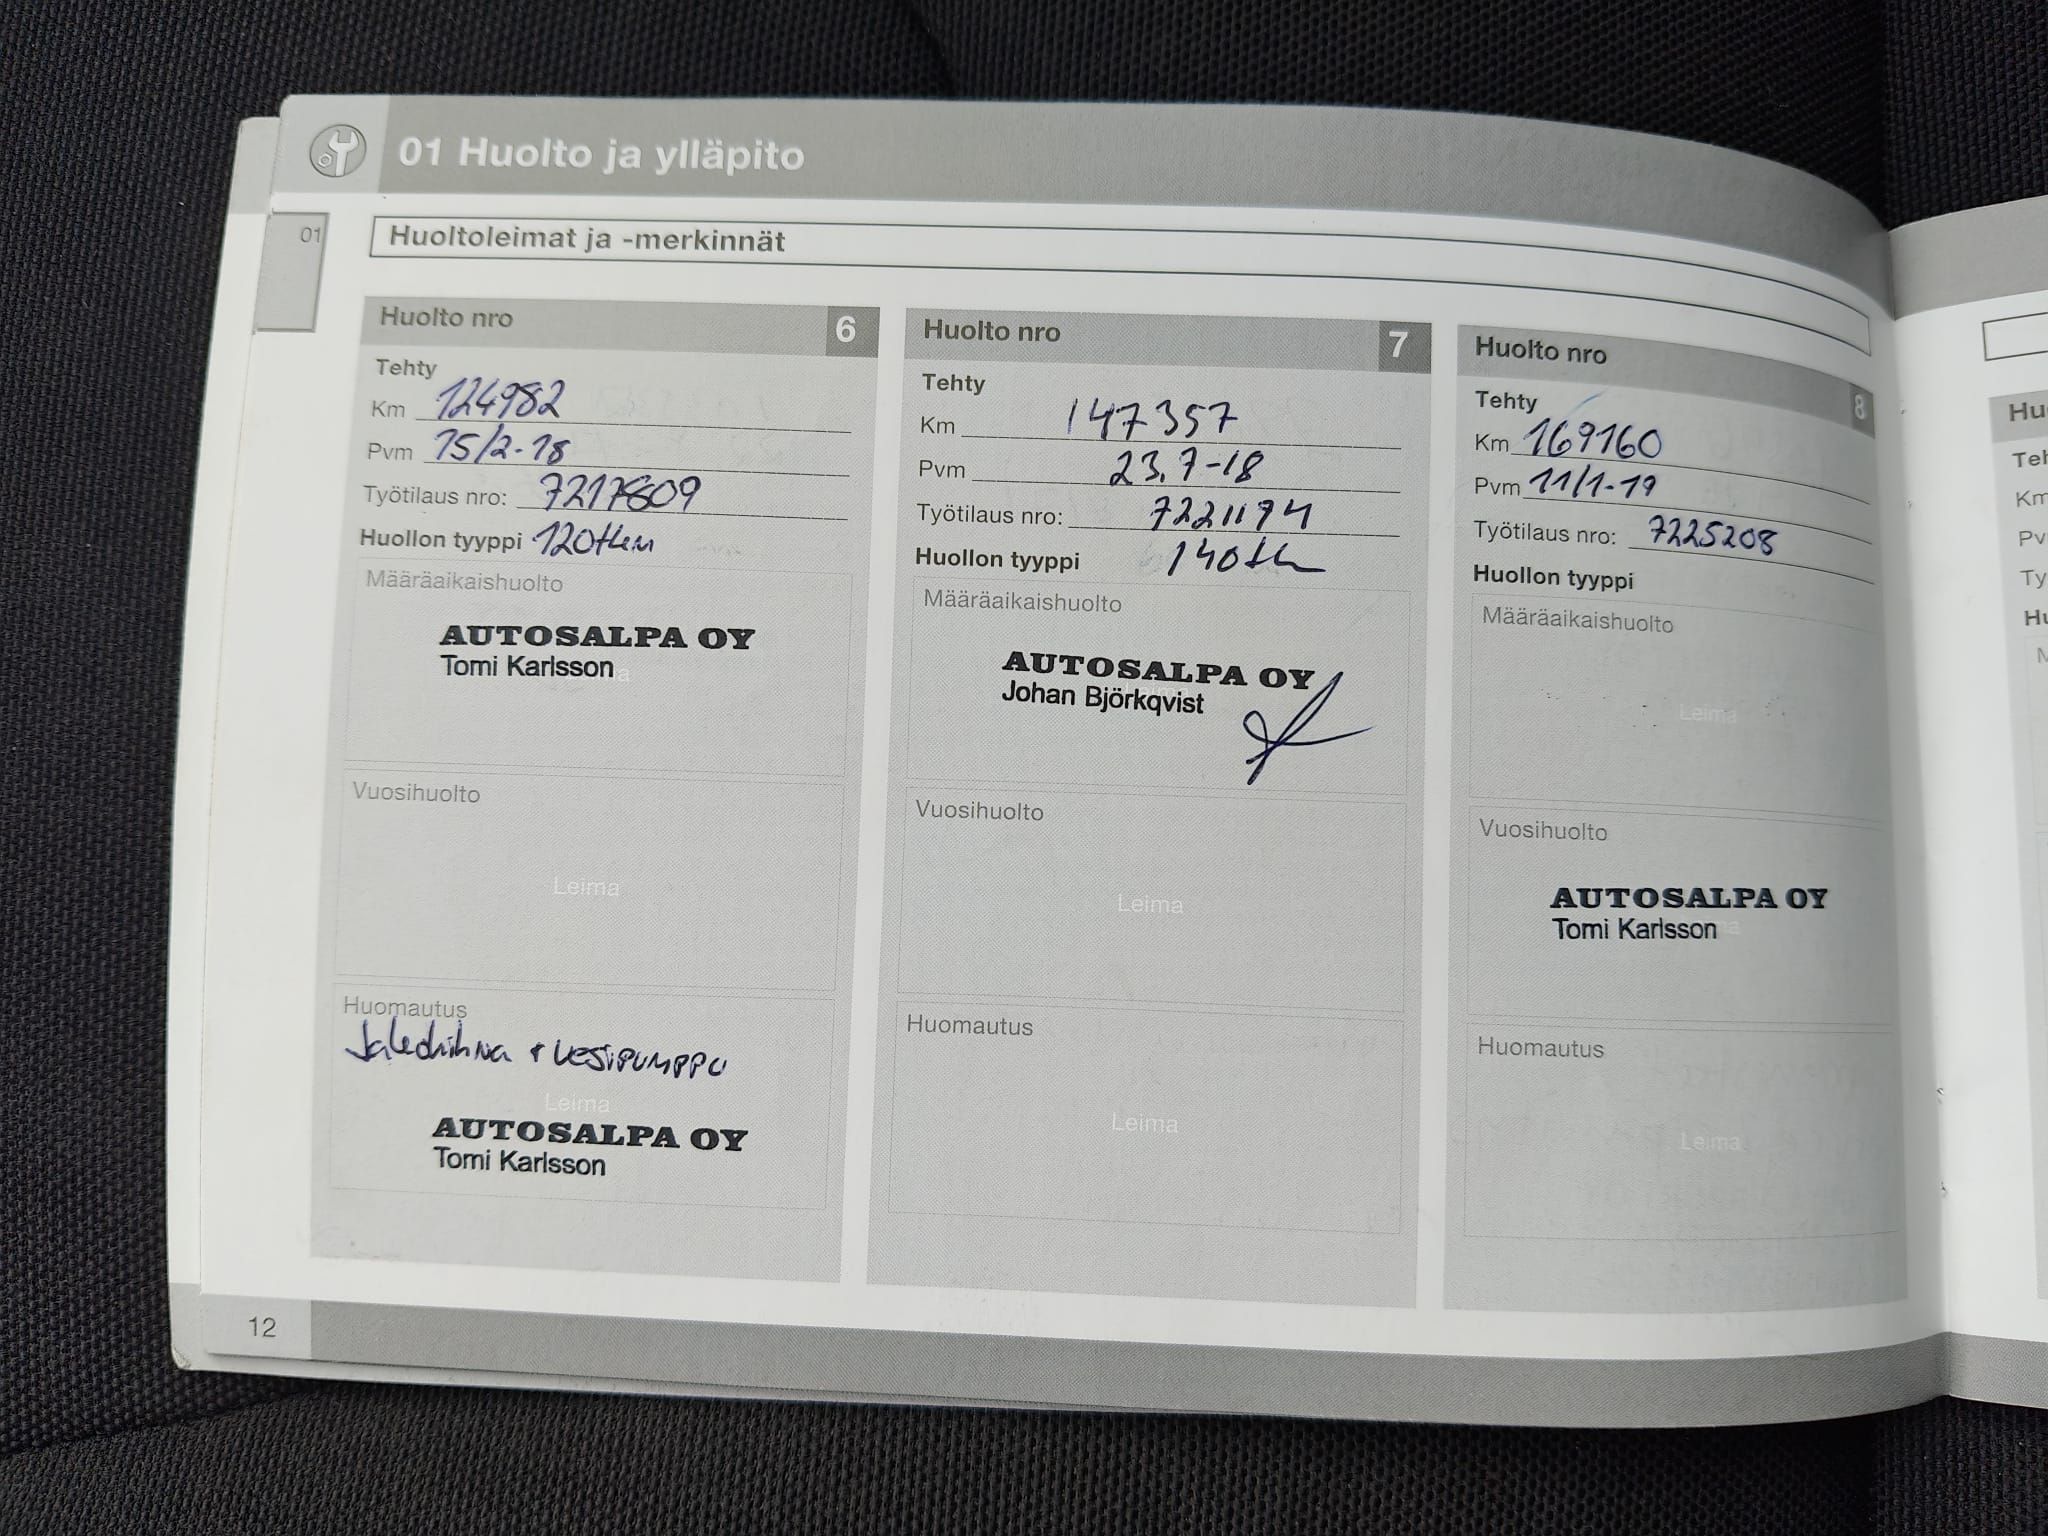 01 Huolto ja ylläpito
01
Huoltoleimat ja -merkinnät
Huolto nro 6
Tehty
Km 124982
Pvm 15/2-18
Työtilaus nro: 7217809
Huollon tyyppi 120tkm
Määräaikaishuolto
AUTOSALPA OY
Tomi Karlsson
Vuosihuolto
Leima
Huomautus
Jakohihna + VESIPUMPPU
Leima
AUTOSALPA OY
Tomi Karlsson
Huolto nro 7
Tehty
Km 147357
Pvm 23.7-18
Työtilaus nro: 7221194
Huollon tyyppi 140tk
Määräaikaishuolto
AUTOSALPA OY
Johan Björkqvist
Vuosihuolto
Leima
Huomautus
Leima
Huolto nro 8
Tehty
Km 169160
Pvm 11/1-19
Työtilaus nro: 7225208
Huollon tyyppi
Määräaikaishuolto
Leima
Vuosihuolto
AUTOSALPA OY
Tomi Karlsson
Huomautus
Leima
12